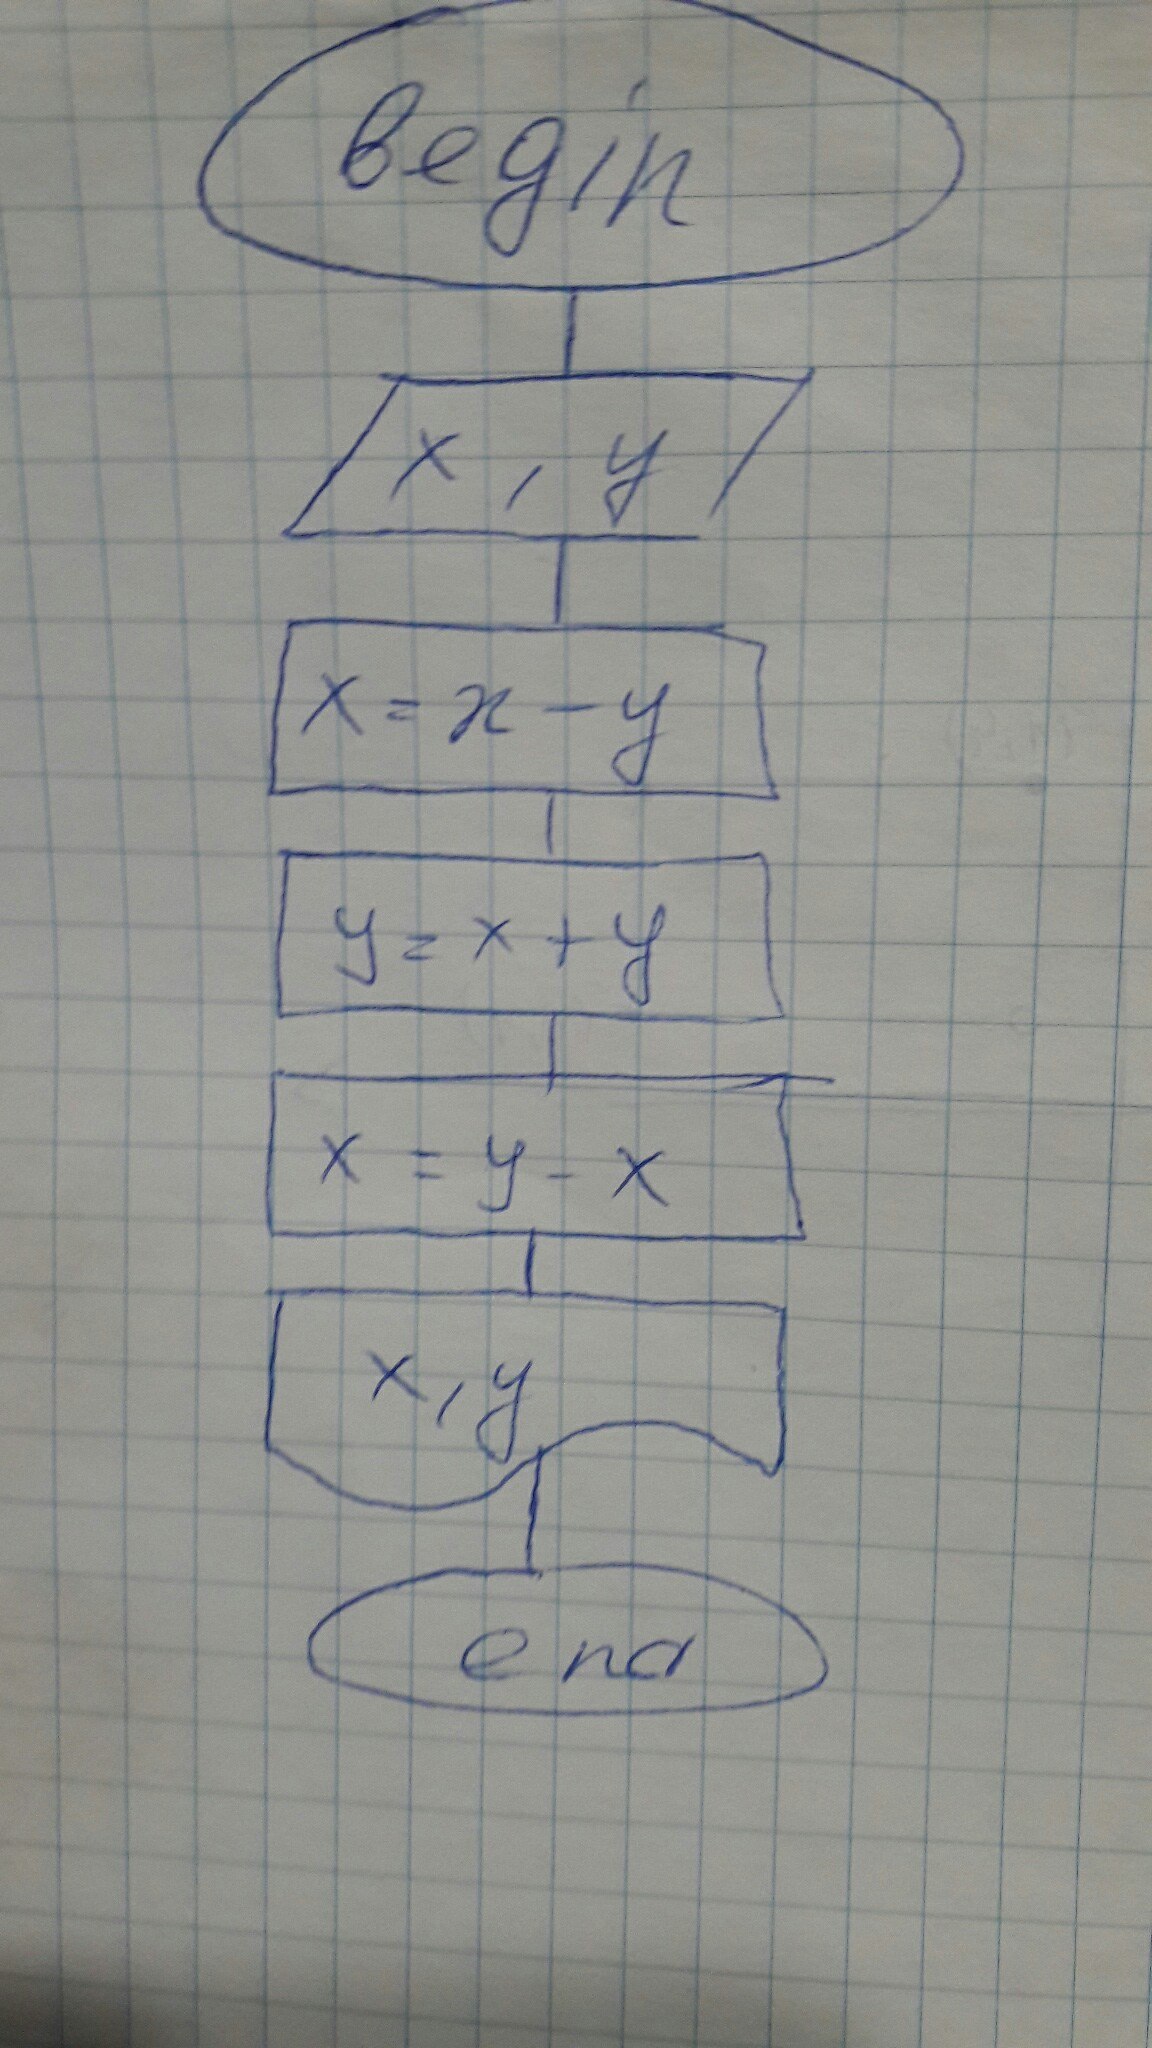 begin
x, y
x = x - y
y = x + y
x = y - x
x, y
end